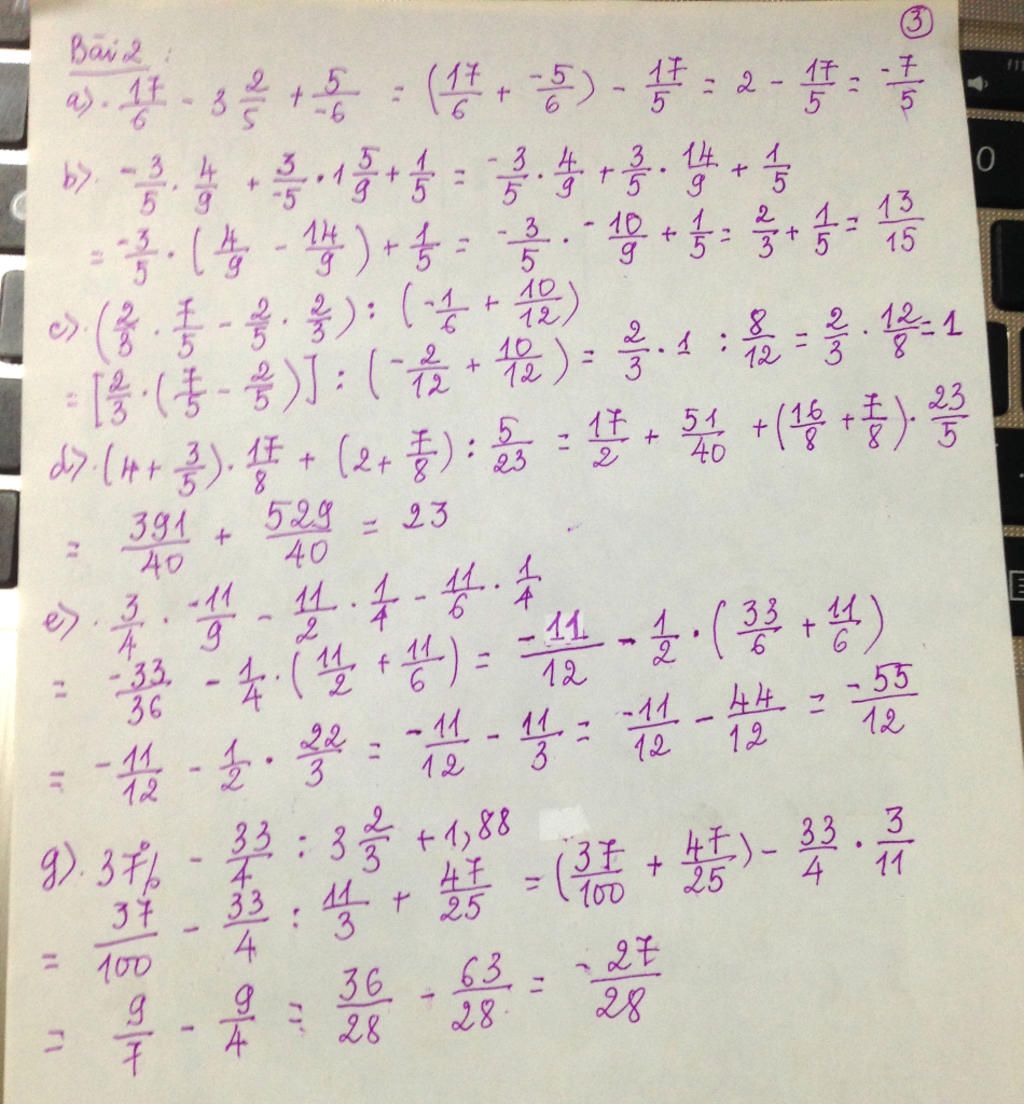 3
Bài 2:
a) · 17/6 - 3 2/5 + 5/-6 = (17/6 + -5/6) - 17/5 = 2 - 17/5 = -7/5
b) · -3/5 · 4/9 + 3/-5 · 1 5/9 + 1/5 = -3/5 · 4/9 + 3/5 · 14/9 + 1/5
= -3/5 · (4/9 - 14/9) + 1/5 = -3/5 · -10/9 + 1/5 = 2/3 + 1/5 = 13/15
c) · (2/3 · 7/5 - 2/5 · 2/3) : (-1/6 + 10/12)
= [2/3 · (7/5 - 2/5)] : (-2/12 + 10/12) = 2/3 · 1 : 8/12 = 2/3 · 12/8 = 1
d) · (4 + 3/5) · 17/8 + (2 + 7/8) : 5/23 = 17/2 + 51/40 + (16/8 + 7/8) · 23/5
= 391/40 + 529/40 = 23
e) · 3/4 · -11/9 - 11/2 · 1/4 - 11/6 · 1/4
= -33/36 - 1/4 · (11/2 + 11/6) = -11/12 - 1/2 · (33/6 + 11/6)
= -11/12 - 1/2 · 22/3 = -11/12 - 11/3 = -11/12 - 44/12 = -55/12
g) · 37% - 33/4 : 3 2/3 + 1,88
= 37/100 - 33/4 : 11/3 + 47/25 = (37/100 + 47/25) - 33/4 · 3/11
= 9/7 - 9/4 = 36/28 - 63/28 = -27/28